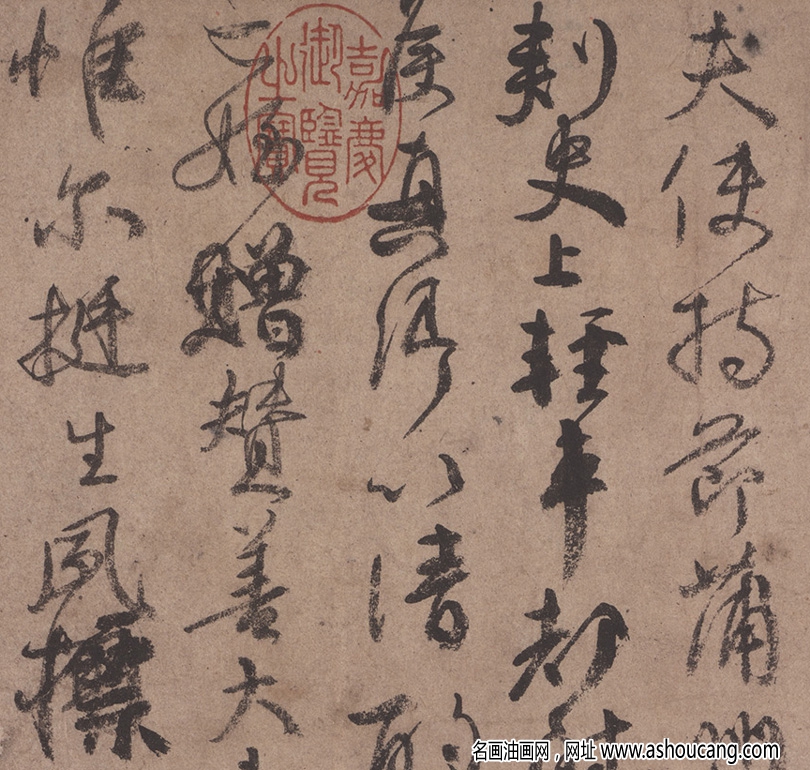 夫使持節蒲州
刺史上輕車都
侯真卿以清酌
亡姪贈贊善大
惟尔挺生夙標
嘉慶御覽之寶
名画油画网，网址 www.ashoucang.com